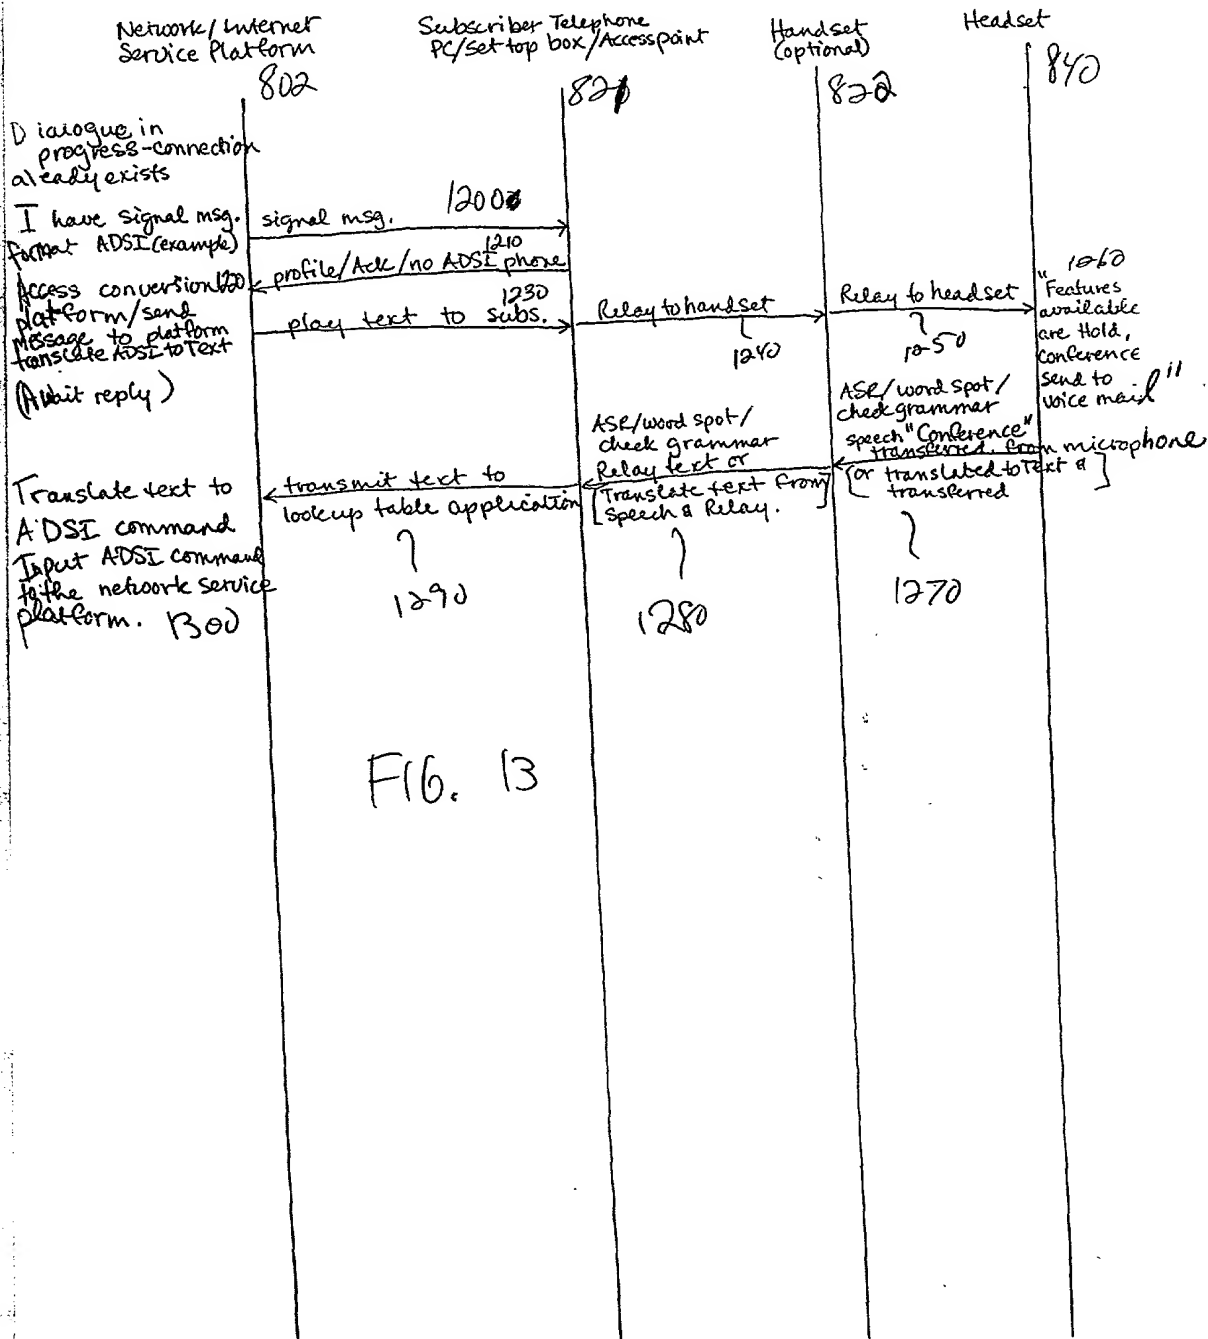 Network/Internet
Service Platform
802
Subscriber Telephone
PC/set top box/Access point
821
Handset
(optional)
822
Headset
840
Dialogue in
progress-connection
already exists
I have signal msg.
format ADSI (example)
signal msg.
1200
1210
profile/Ack/no ADSI phone
Access conversion 1220
platform/send
message to platform
translate ADSI to Text
(Await reply)
1230
play text to subs.
Relay to handset
1240
Relay to headset
1250
1260
"Features
available
are Hold,
Conference
send to
voice mail"
ASR/word spot/
check grammar
speech "Conference"
transferred from microphone
[or translated to Text &
transferred]
1270
ASR/word spot/
check grammar
Relay text or
[Translate text from
speech & Relay.]
1280
transmit text to
lookup table application
1290
Translate text to
ADSI command
Input ADSI command
to the network service
platform. 1300
FIG. 13